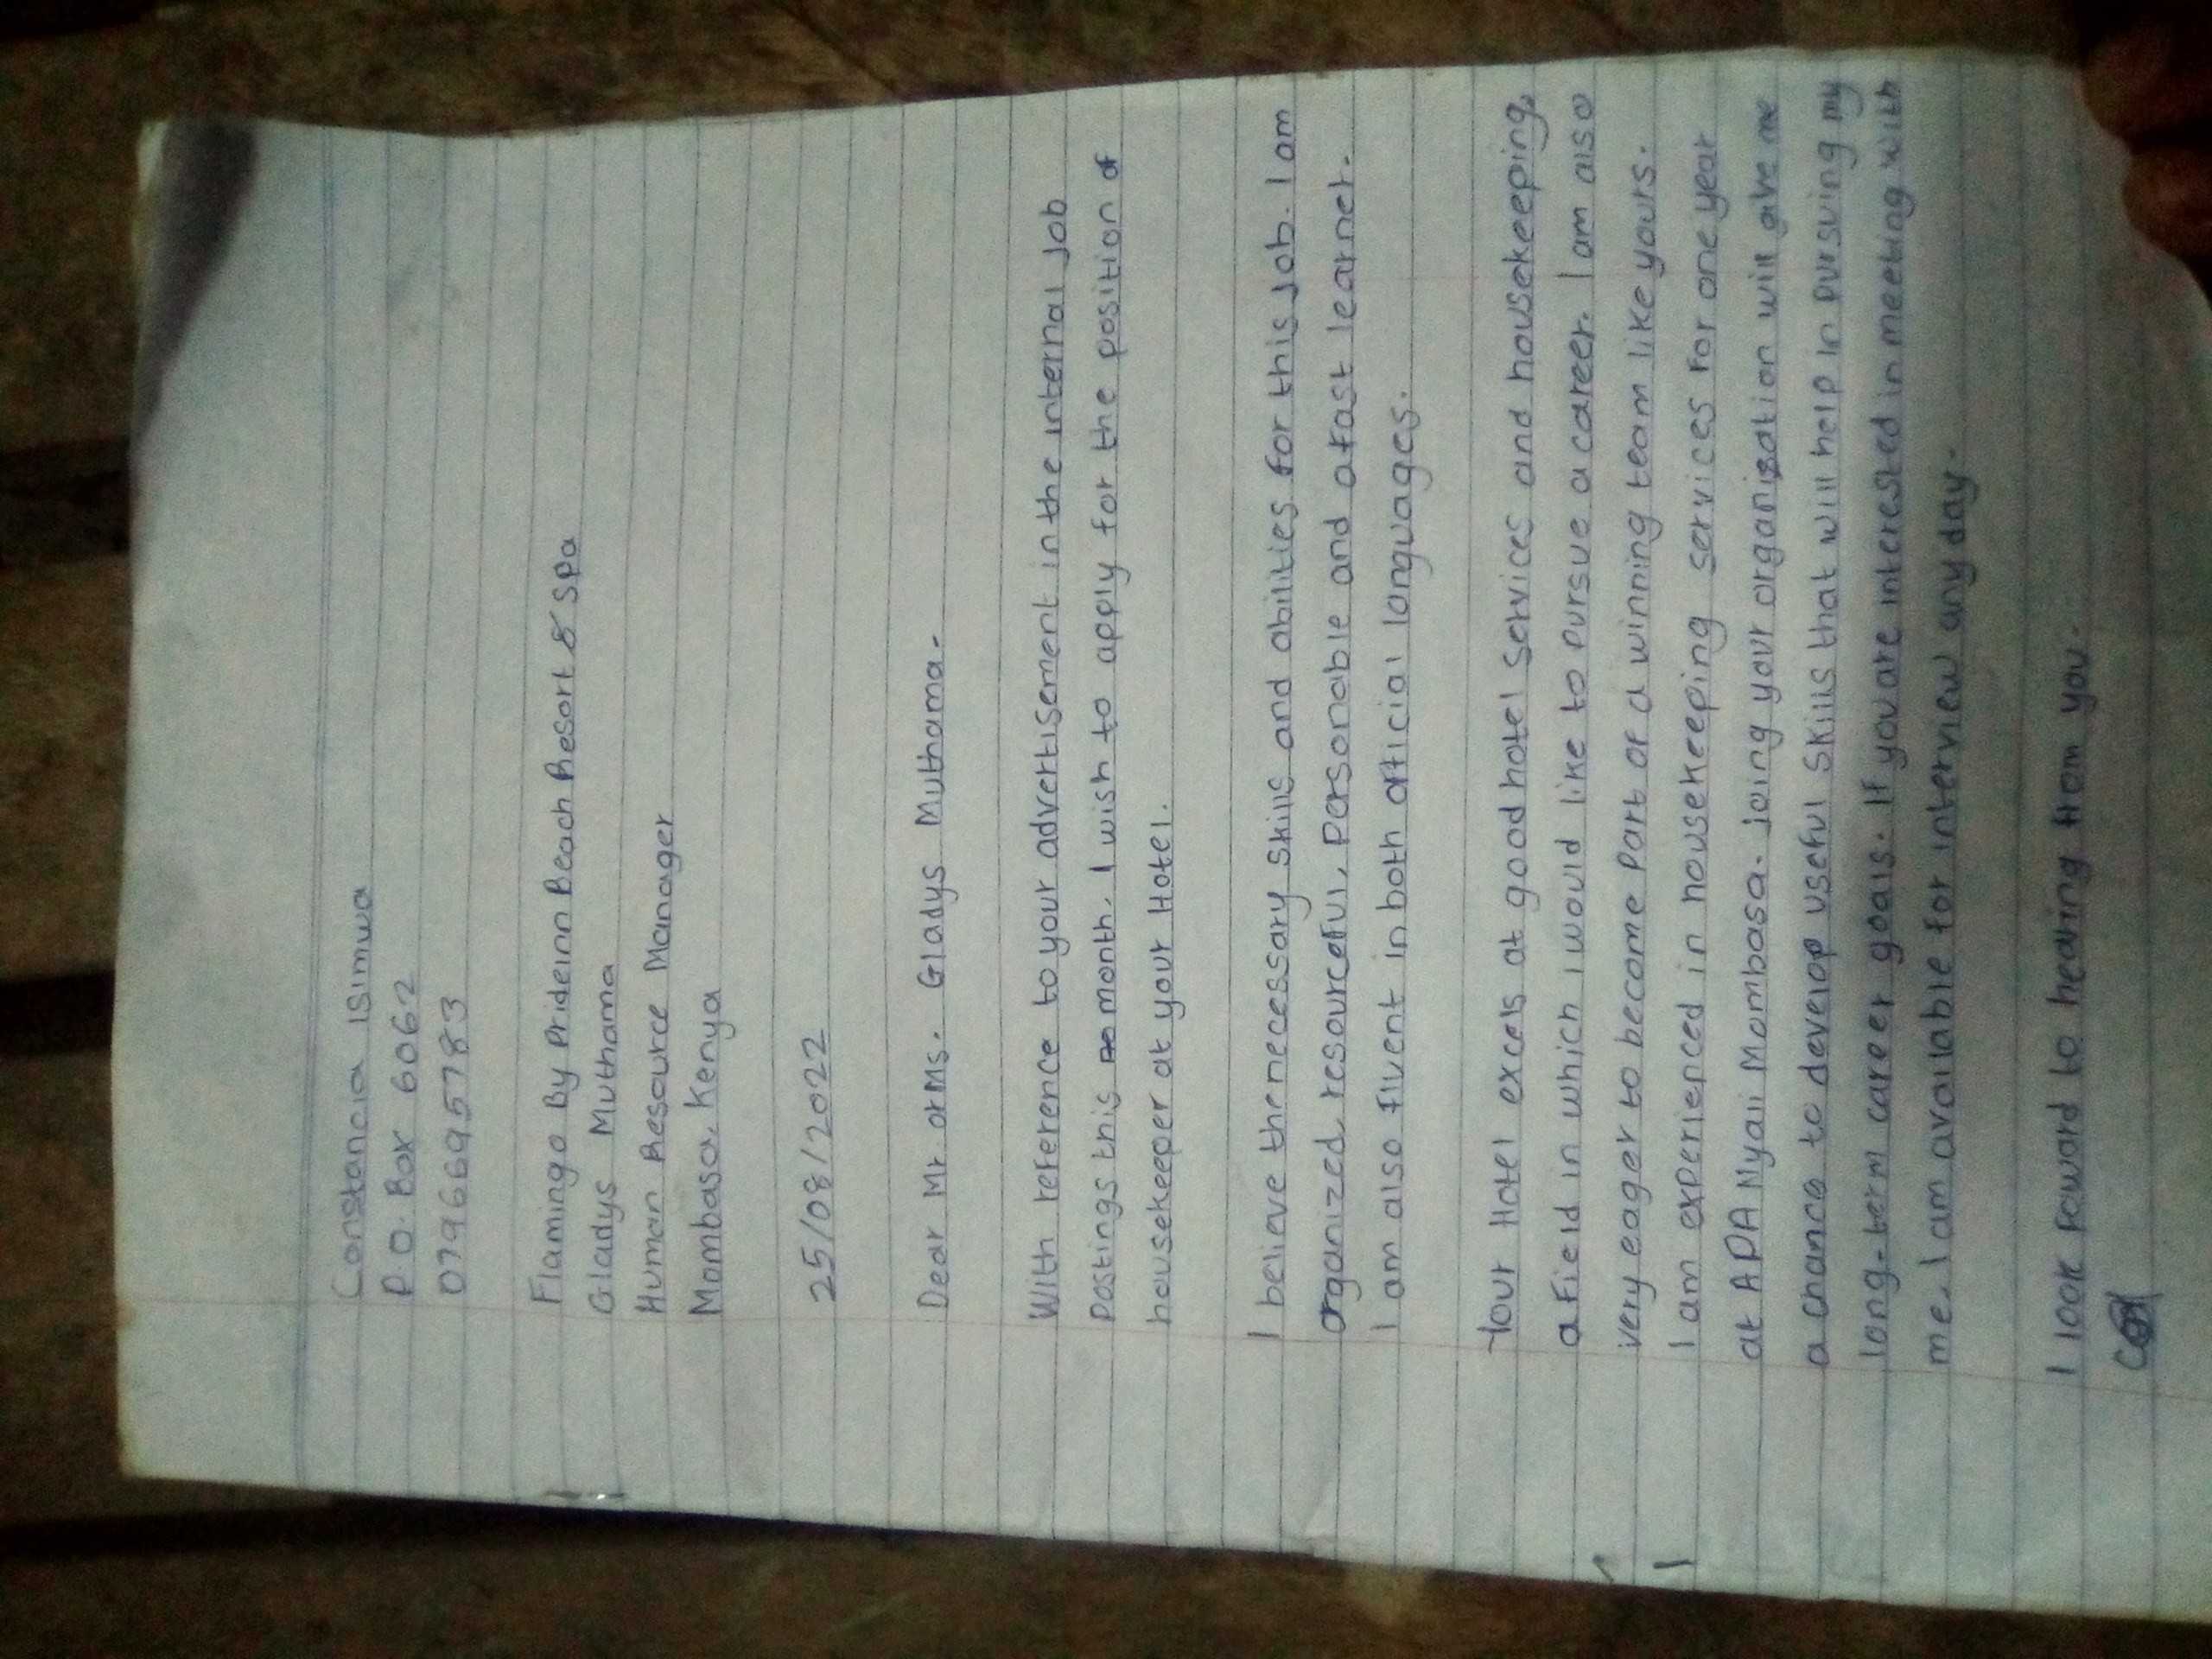 Constancia Isimwa
P.O. Box 6062
0796695783
Flamingo By PrideInn Beach Resort & Spa
Gladys Muthama
Human Resource Manager
Mombasa, Kenya
25/08/2022
Dear Mr or Ms. Gladys Muthama.
With reference to your advertisement in the internal job
postings this month. I wish to apply for the position of
housekeeper at your Hotel.
I believe the necessary skills and abilities for this job. I am
organized, resourceful, personable and a fast learner.
I am also fluent in both official languages.
Your Hotel excels at good hotel services and housekeeping,
a field in which I would like to pursue a career. I am also
very eager to become part of a winning team like yours.
I am experienced in housekeeping services for one year
at APA Nyali Mombasa. Joing your organization will give me
a chance to develop useful skills that will help in pursuing my
long-term career goals. If you are interested in meeting with
me, I am available for interview any day.
I look foward to hearing from you.